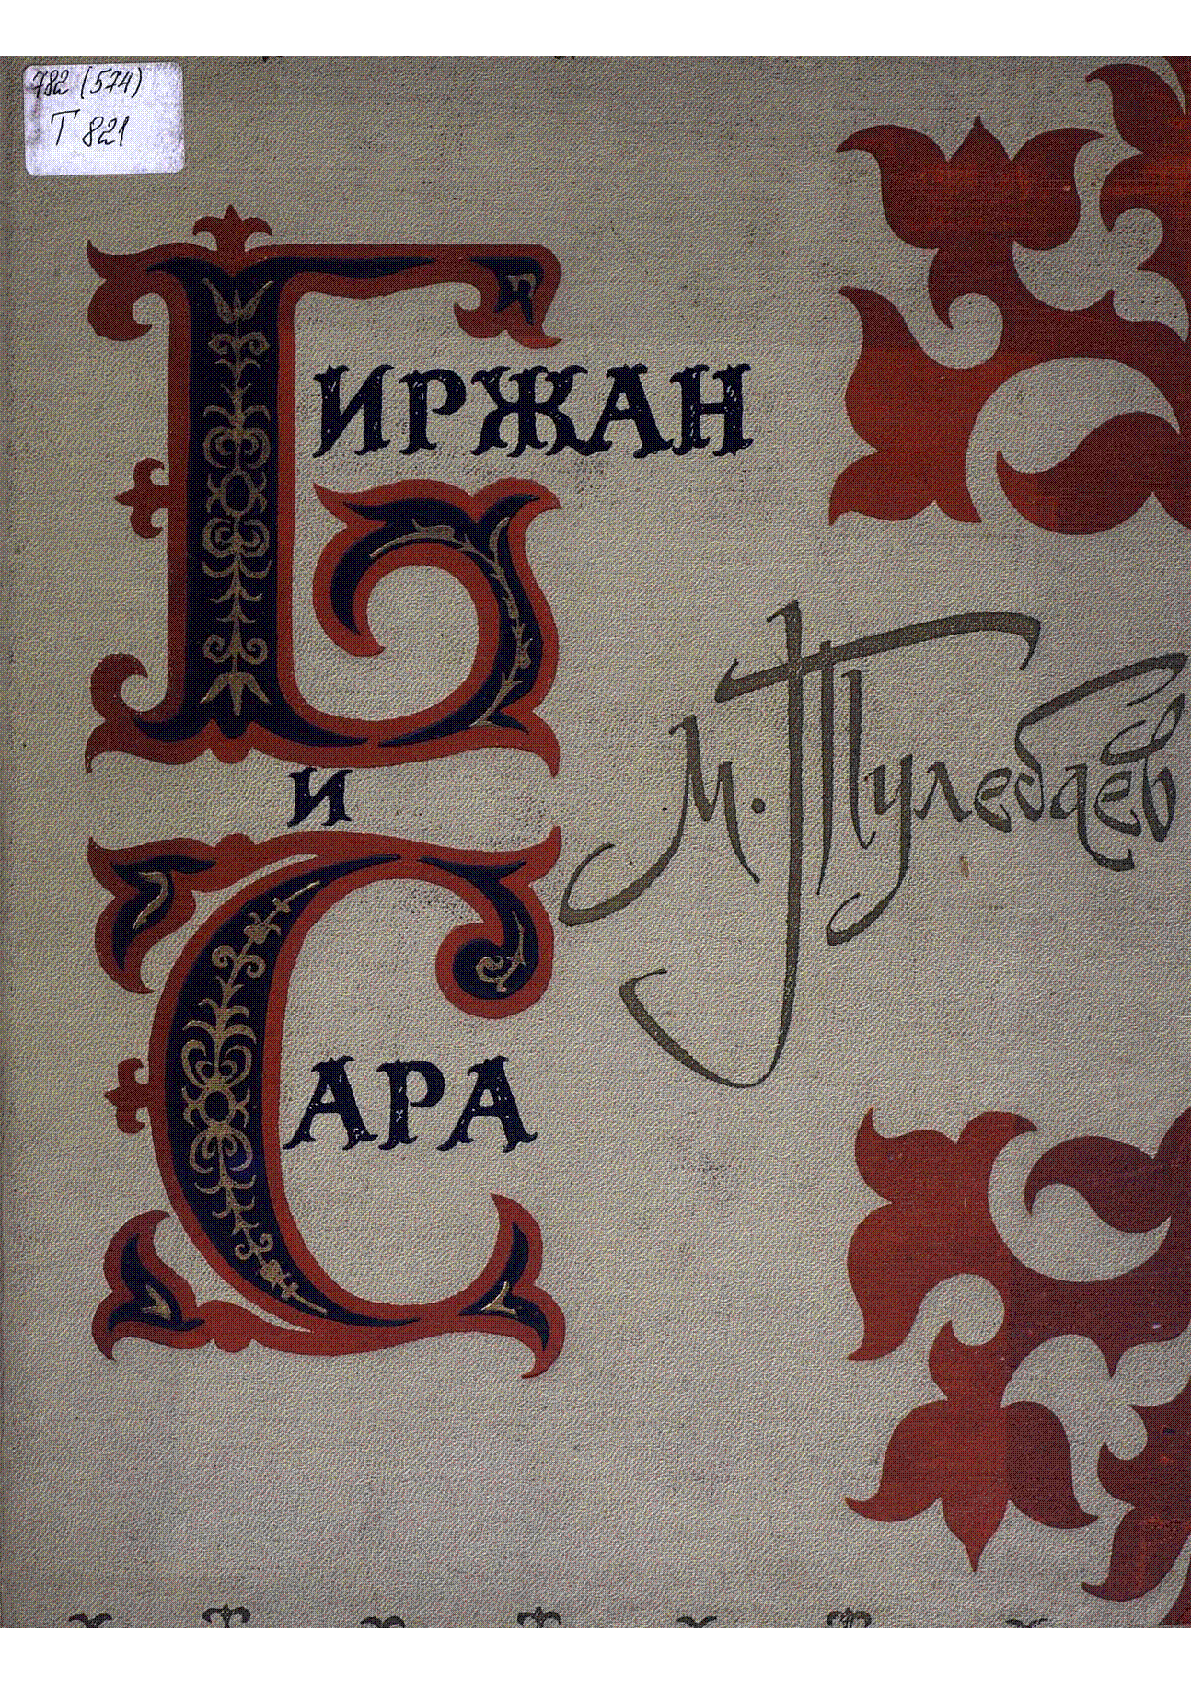 782 (574)
Т 821
БИРЖАН
И
САРА
М. Тулебаев